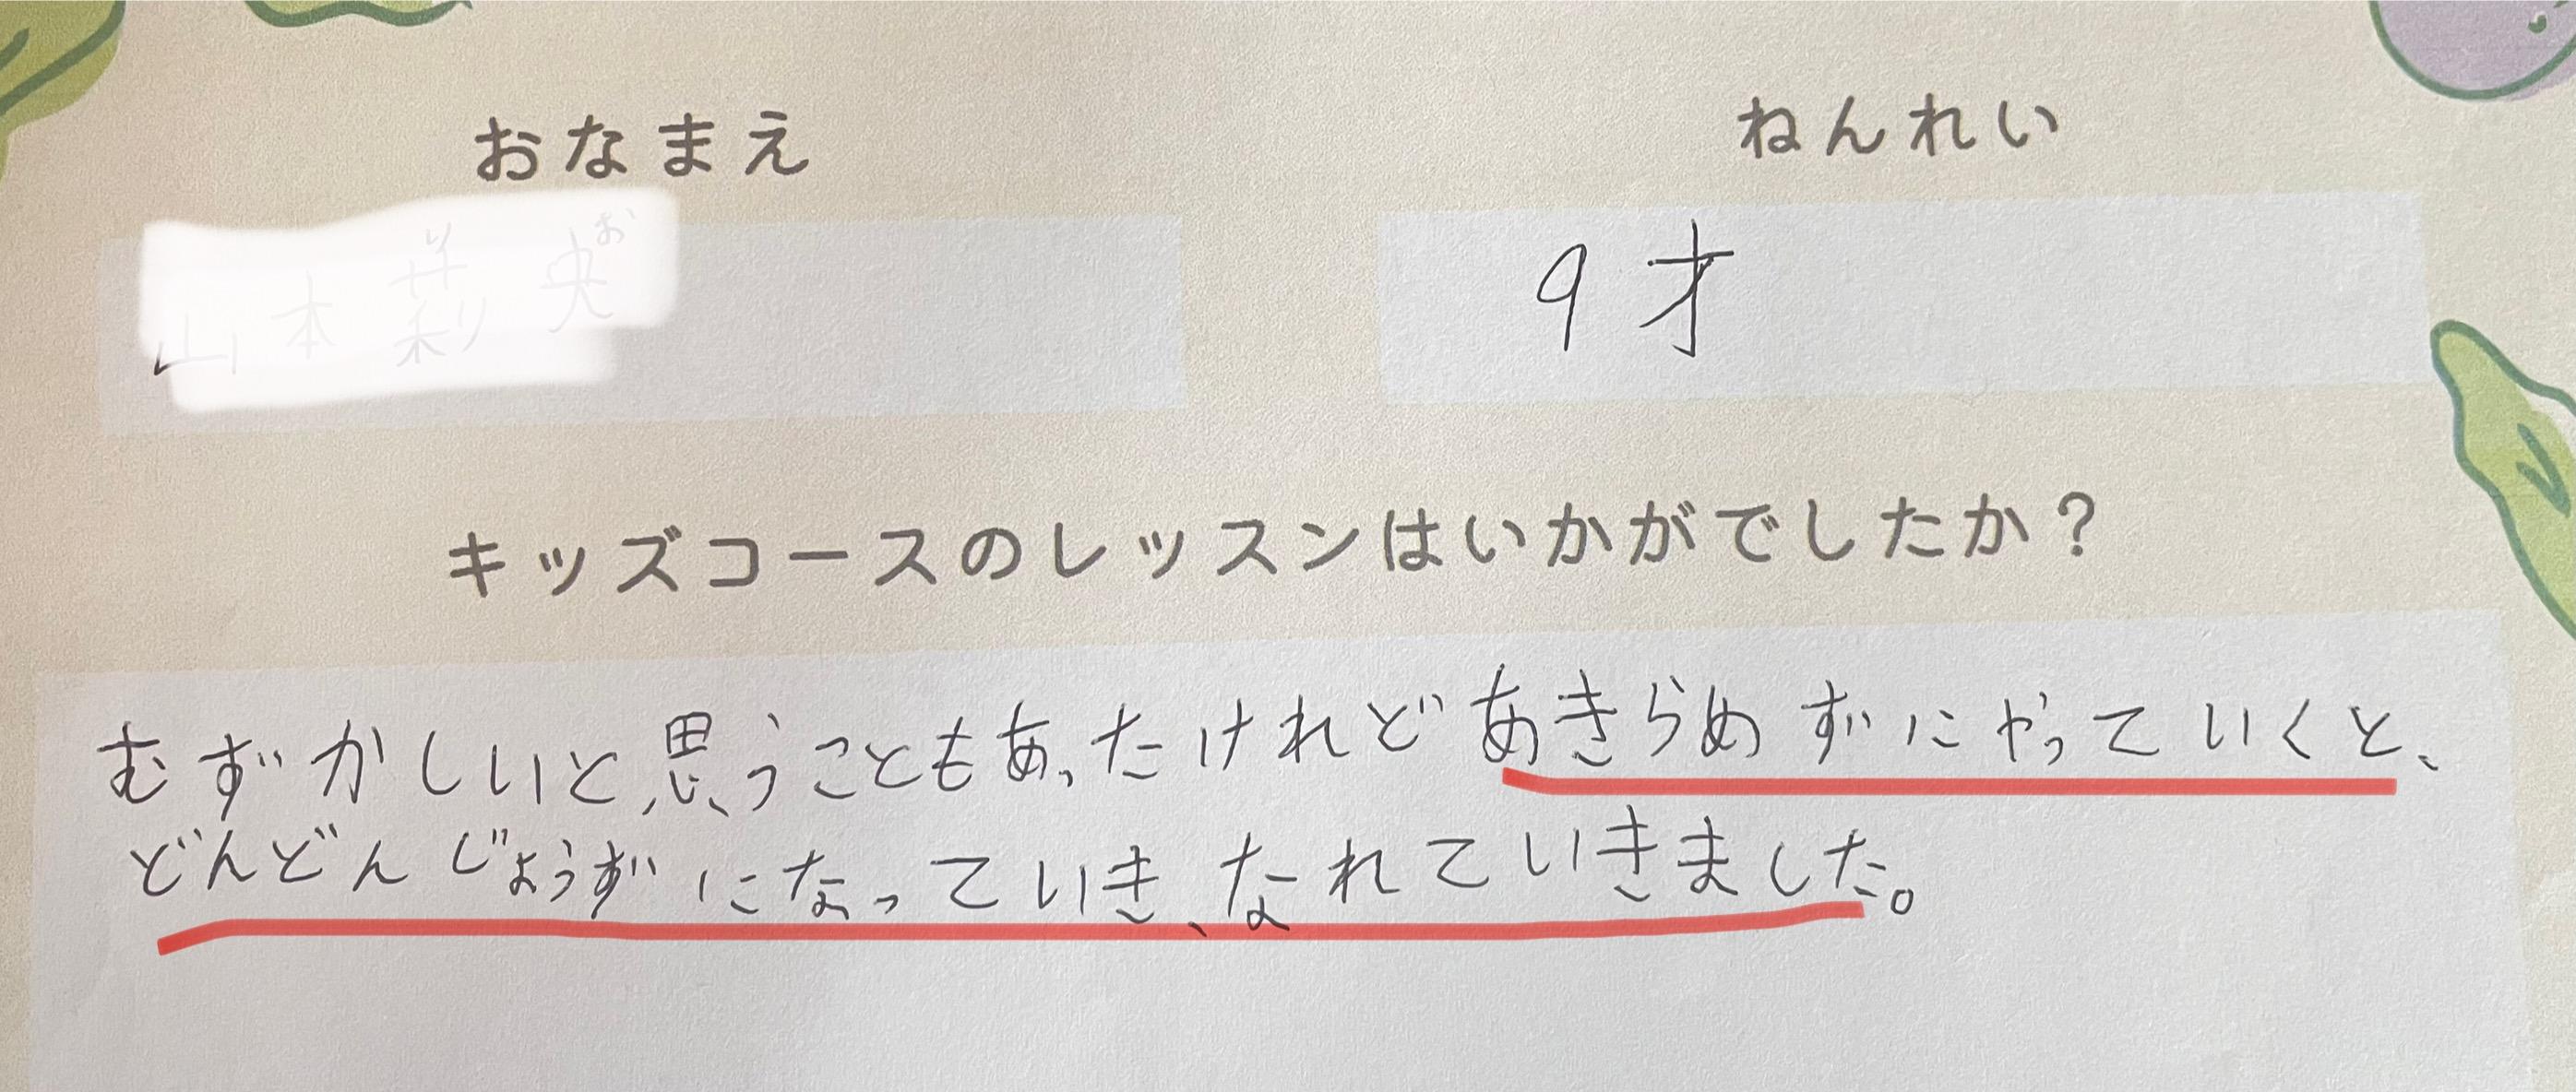 おなまえ
ねんれい
9才
キッズコースのレッスンはいかがでしたか？
むずかしいと思うこともあったけれどあきらめずにやっていくと、
どんどんじょうずになっていき、なれていきました。